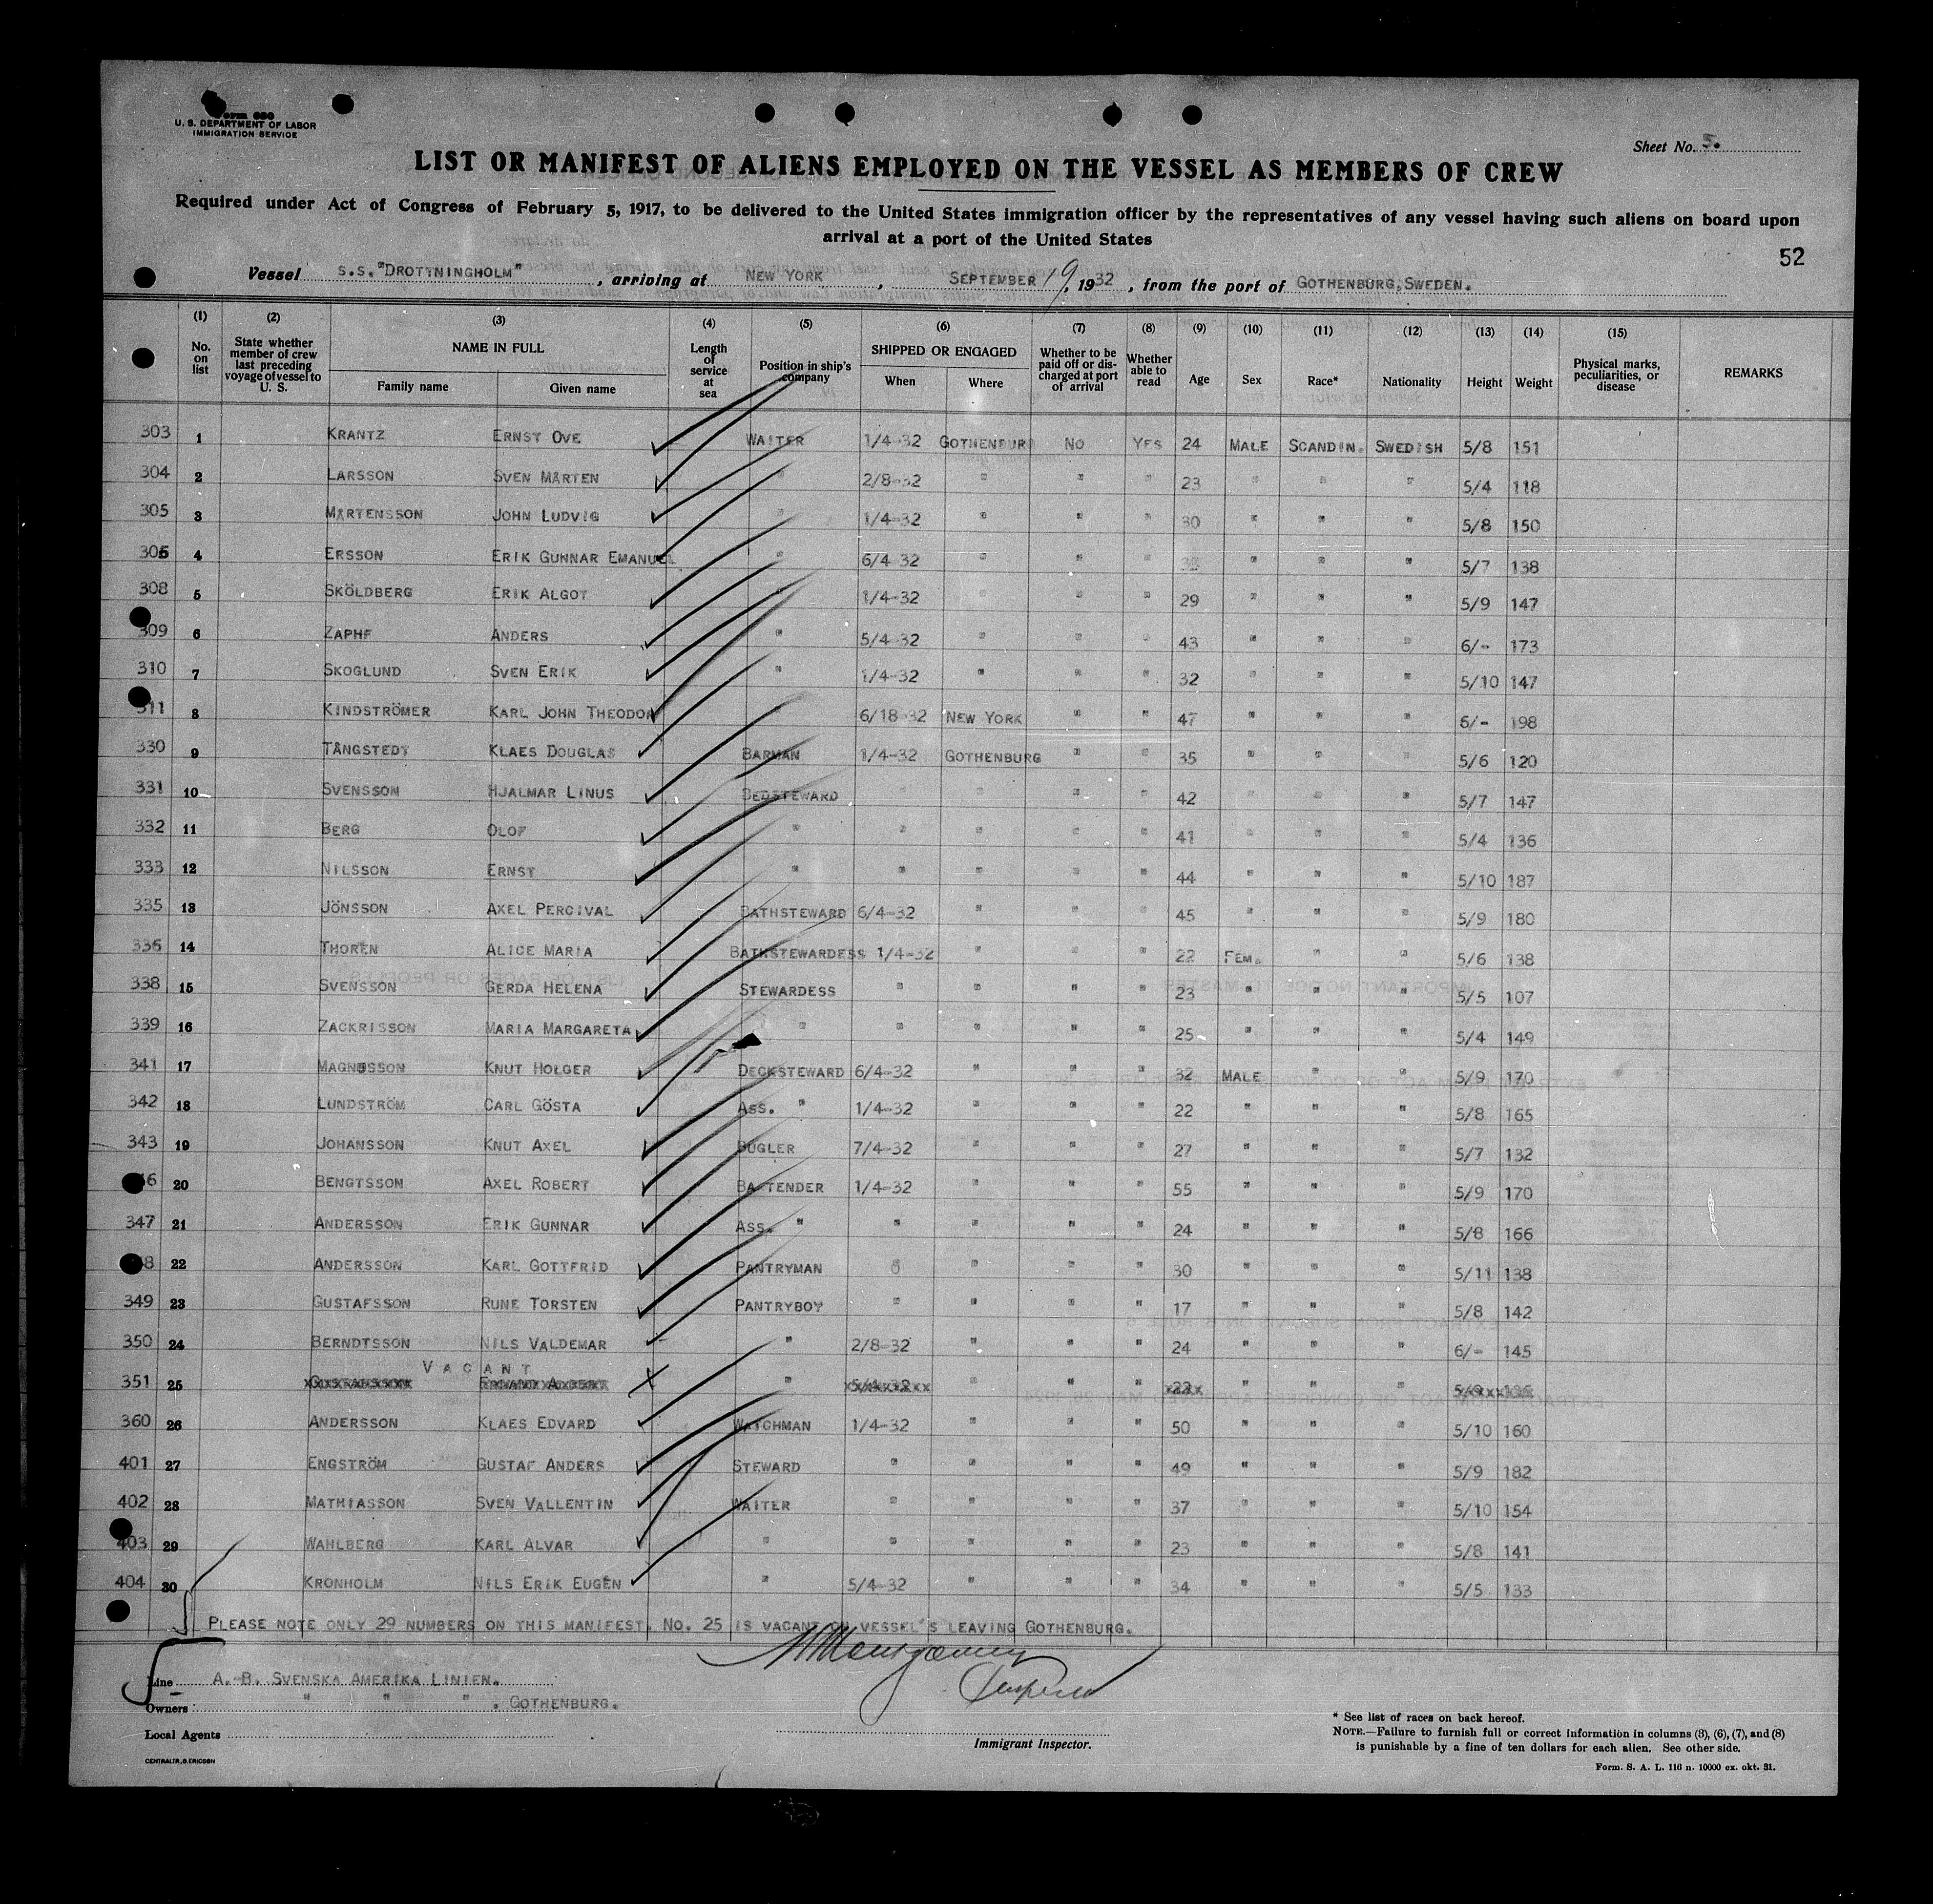 Form 680
U. S. DEPARTMENT OF LABOR
IMMIGRATION SERVICE
Sheet No. 5.
LIST OR MANIFEST OF ALIENS EMPLOYED ON THE VESSEL AS MEMBERS OF CREW
Required under Act of Congress of February 5, 1917, to be delivered to the United States immigration officer by the representatives of any vessel having such aliens on board upon
arrival at a port of the United States
52
Vessel S.S."DROTTNINGHOLM", arriving at NEW YORK, SEPTEMBER 19, 1932, from the port of GOTHENBURG, SWEDEN.
(1) (2) (3) (4) (5) (6) (7) (8) (9) (10) (11) (12) (13) (14) (15)
No. on list State whether member of crew last preceding voyage of vessel to U. S. NAME IN FULL Family name Given name Length of service at sea Position in ship's company SHIPPED OR ENGAGED When Where Whether to be paid off or discharged at port of arrival Whether able to read Age Sex Race* Nationality Height Weight Physical marks, peculiarities, or disease REMARKS
303 1 KRANTZ ERNST OVE WAITER 1/4-32 GOTHENBURG NO YES 24 MALE SCANDIN. SWEDISH 5/8 151
304 2 LARSSON SVEN MÅRTEN " 2/8-32 " " " 23 " " " 5/4 118
305 3 MÅRTENSSON JOHN LUDVIG " 1/4-32 " " " 30 " " " 5/8 150
306 4 ERSSON ERIK GUNNAR EMANUEL " 6/4-32 " " " " " " 5/7 138
308 5 SKÖLDBERG ERIK ALGOT 1/4-32 " " " 29 " " " 5/9 147
309 6 ZAPHF ANDERS " 5/4-32 " " " 43 " " " 6/- 173
310 7 SKOGLUND SVEN ERIK " 1/4-32 " " " 32 " " " 5/10 147
311 8 KINDSTRÖMER KARL JOHN THEODOR " 6/18-32 NEW YORK " " 47 " " " 6/- 198
330 9 TÅNGSTEDT KLAES DOUGLAS BARMAN 1/4-32 GOTHENBURG " " 35 " " " 5/6 120
331 10 SVENSSON HJALMAR LINUS BEDSTEWARD " " " " 42 " " " 5/7 147
332 11 BERG OLOF " " " " " 41 " " " 5/4 136
333 12 NILSSON ERNST " " " " " 44 " " " 5/10 187
335 13 JÖNSSON AXEL PERCIVAL BATHSTEWARD 6/4-32 " " " 45 " " " 5/9 180
336 14 THOREN ALICE MARIA BATHSTEWARDESS 1/4-32 " " " 22 FEM. " " 5/6 138
338 15 SVENSSON GERDA HELENA STEWARDESS " " " " 23 " " " 5/5 107
339 16 ZACKRISSON MARIA MARGARETA " " " " " 25 " " " 5/4 149
341 17 MAGNUSSON KNUT HOLGER DECKSTEWARD 6/4-32 " " " 32 MALE " " 5/9 170
342 18 LUNDSTRÖM CARL GÖSTA ASS. " 1/4-32 " " " 22 " " " 5/8 165
343 19 JOHANSSON KNUT AXEL BUGLER 7/4-32 " " " 27 " " " 5/7 132
20 BENGTSSON AXEL ROBERT BARTENDER 1/4-32 " " " 55 " " " 5/9 170
347 21 ANDERSSON ERIK GUNNAR ASS. " " " " " 24 " " " 5/8 166
22 ANDERSSON KARL GOTTFRID PANTRYMAN " " " " 30 " " " 5/11 138
349 23 GUSTAFSSON RUNE TORSTEN PANTRYBOY " " " " 17 " " " 5/8 142
350 24 BERNDTSSON NILS VALDEMAR " 2/8-32 " " " 24 " " " 6/- 145
VACANT
351 25 " " " " " " "
360 26 ANDERSSON KLAES EDVARD WATCHMAN 1/4-32 " " " 50 " " " 5/10 160
401 27 ENGSTRÖM GUSTAF ANDERS STEWARD " " " " 49 " " " 5/9 182
402 28 MATHIASSON SVEN VALLENTIN WAITER " " " " 37 " " " 5/10 154
403 29 WAHLBERG KARL ALVAR " " " " " 23 " " " 5/8 141
404 30 KRONHOLM NILS ERIK EUGEN " 5/4-32 " " " 34 " " " 5/5 133
PLEASE NOTE ONLY 29 NUMBERS ON THIS MANIFEST. NO. 25 IS VACANT ON VESSEL'S LEAVING GOTHENBURG.
Line A.-B. SVENSKA AMERIKA LINIEN.
Owners " " " . GOTHENBURG.
Local Agents
Montgomery
Inspector
Immigrant Inspector.
* See list of races on back hereof.
NOTE.—Failure to furnish full or correct information in columns (3), (6), (7), and (8)
is punishable by a fine of ten dollars for each alien. See other side.
CENTRALTR., G. ERICSON
Form. S. A. L. 116 n. 10000 ex. okt. 31.